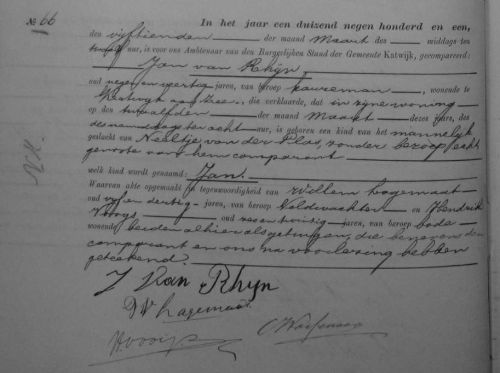 № 66
In het jaar een duizend negen honderd en een,
den vijftienden der maand Maart des middags ten
twaalf ure, is voor ons Ambtenaar van den Burgerlijken Stand der Gemeente Katwijk, gecompareerd:
Jan van Rhijn,
oud negen en veertig jaren, van beroep, wonende te
Katwijk aan Zee, die verklaarde, dat in zijne woning
op den twaalfden der maand Maart dezes jaars, des
des namiddags ten acht ure, is geboren een kind van het mannelijk
geslacht van Neeltje van der Plas, zonder beroep, echt-
genoote van hem comparant
welk kind wordt genaamd: Jan.
Waarvan akte opgemaakt in tegenwoordigheid van Willem Hagemaat
oud vijf en dertig jaren, van beroep Veldwachter en Hendrik
oud zes en twintig jaren, van beroep bode
wonende beiden alhier als getuigen, die benevens den
comparant en ons na voorlezing hebben
geteekend.
J Van Rhijn
W Hagemaat